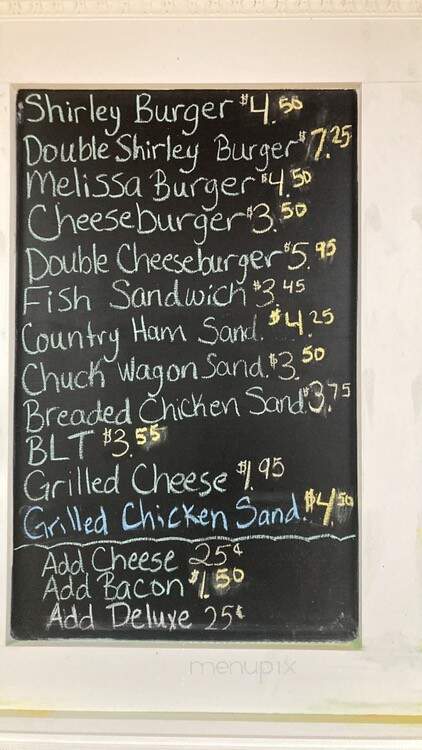 Shirley Burger $4.50
Double Shirley Burger $7.25
Melissa Burger $4.50
Cheeseburger $3.50
Double Cheeseburger $5.95
Fish Sandwich $3.45
Country Ham Sand. $4.25
Chuck Wagon Sand. $3.50
Breaded Chicken Sand. $3.75
BLT $3.55
Grilled Cheese $1.95
Grilled Chicken Sand. $4.50
Add Cheese 25¢
Add Bacon $1.50
Add Deluxe 25¢
menupix